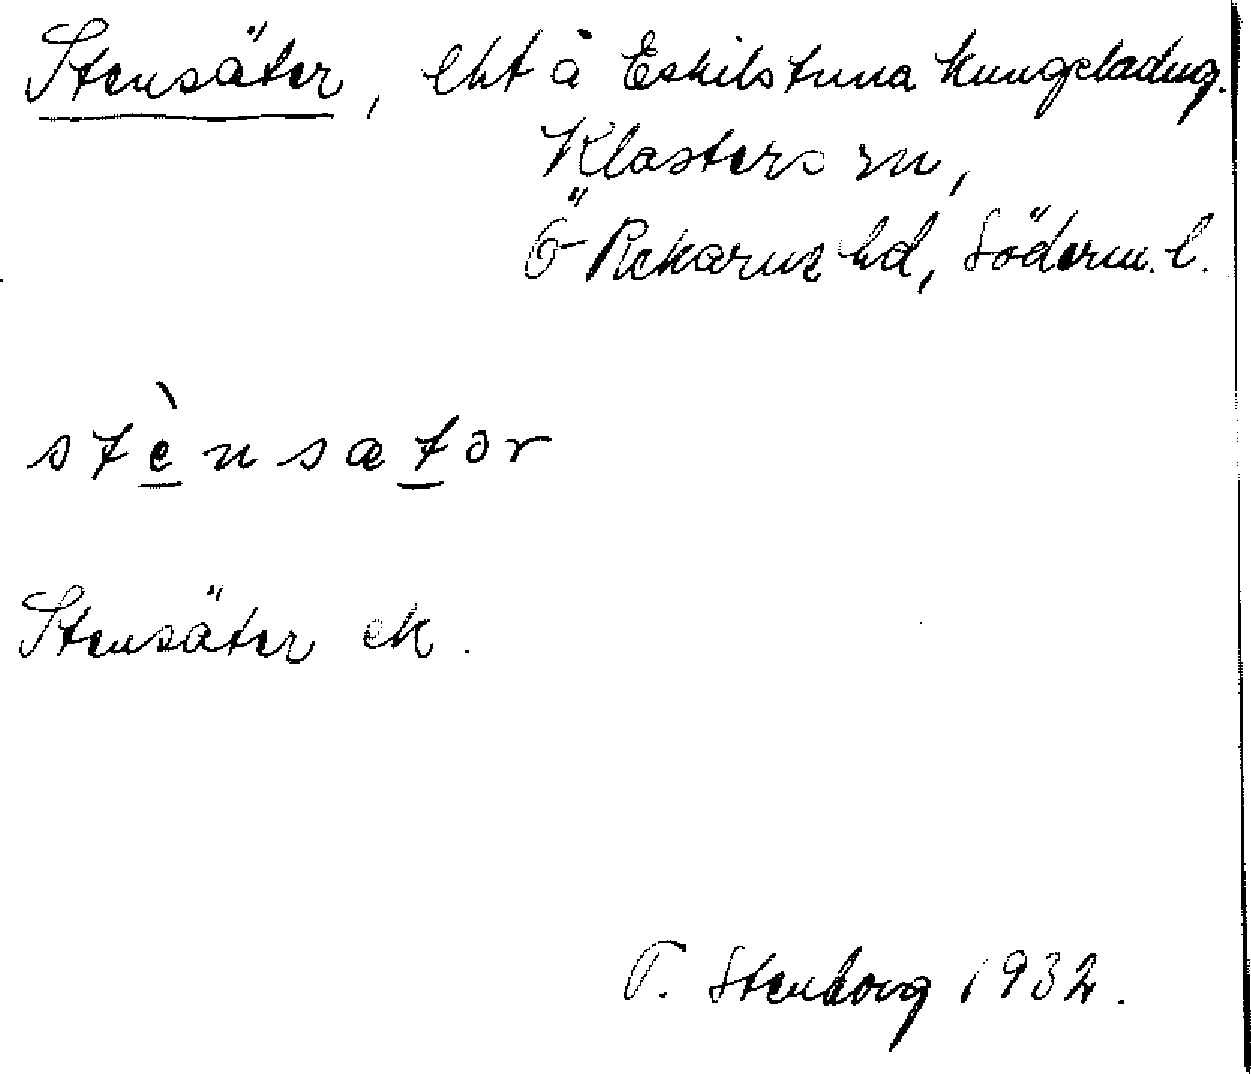 Stensäter, lht å Eskilstuna kungsladug.
Klosters sn,
Ö Rekarne hd, Söderm. l.
stènsætər
Stensäter ek.
T. Stenborg 1932.